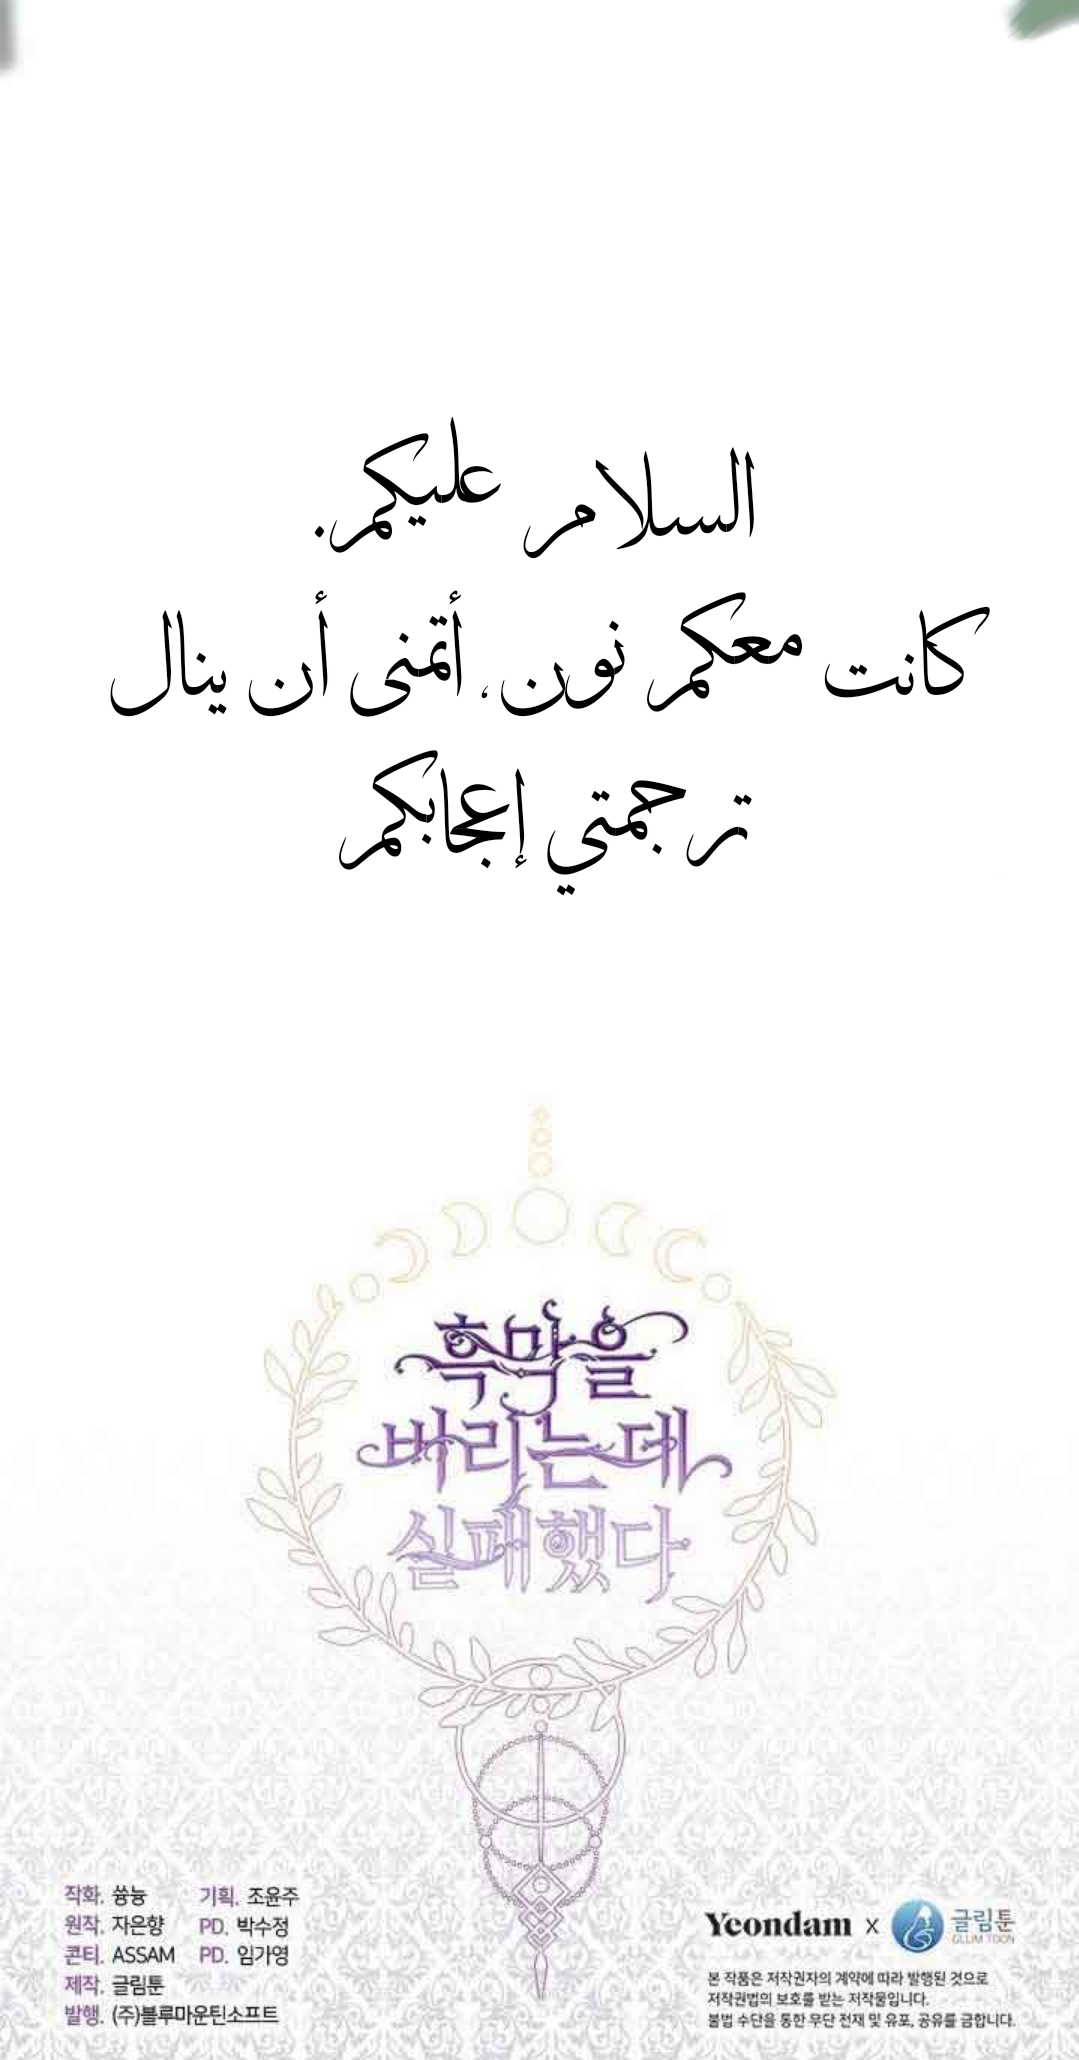 السلام عليكم.
كانت معكم نون، أتمنى أن ينال
ترجمتي إعجابكم
흑막을
버리는데
실패했다
작화. 쓩늉 기획. 조윤주
원작. 자은향 PD. 박수정
콘티. ASSAM PD. 임가영
제작. 글림툰
발행. (주)블루마운틴소프트
Yeondam x 글림툰
GLLIM TOON
본 작품은 저작권자의 계약에 따라 발행된 것으로
저작권법의 보호를 받는 저작물입니다.
불법 수단을 통한 무단 전재 및 유포, 공유를 금합니다.